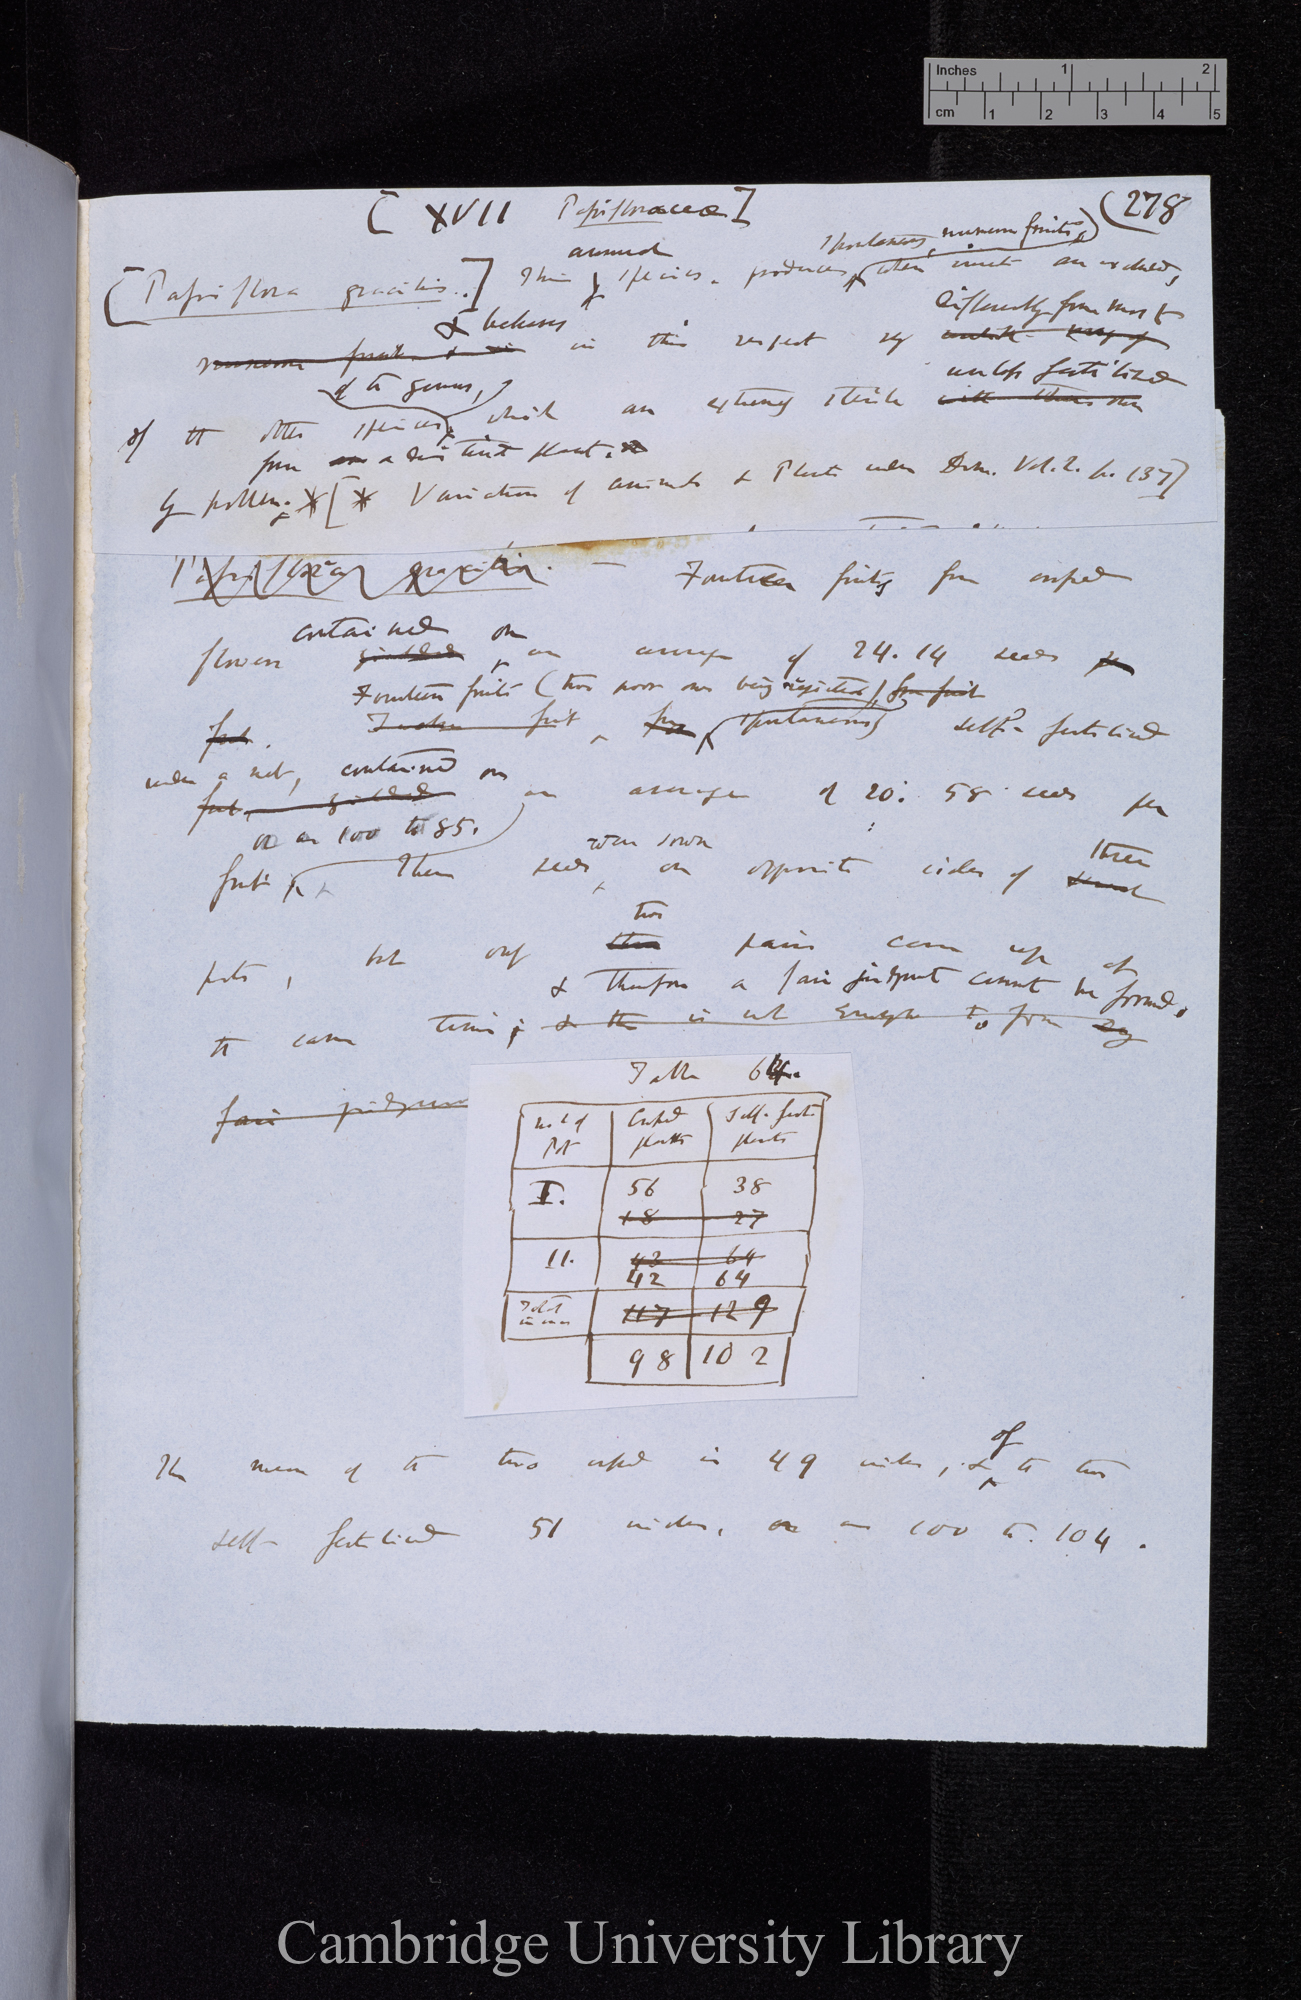 Inches 1 2
cm 1 2 3 4 5
[XVII Passifloraceae]
(278
annual
spontaneously numerous fruits,
[Passiflora gracilis.] This species produces when insects are excluded,
& behaves
differently from most
numerous fruit in this respect very
of the genus,
unless fertilised
of the other species which are extremely sterile with their own
from a distinct plant.
by pollen.* [* Variation of animals & Plants under Dom. Vol. 2. p. 137]
Passiflora gracilis. — Fourteen fruits from crossed
contained on
flowers yielded an average of 24.14 seeds
Fourteen fruits (two poor ones being rejected) from fruit
fruit. fruit spontaneously self-fertilised
under a net, contained on
fruit yielded an average of 20.58 seeds per
or as 100 to 85.
were sown
three
fruit These seeds on opposite sides of
two
pots, but only three pairs came up at
& therefore a fair judgment cannot be formed.
the same time; & this is not enough to form any
fair judgment
Table 64.
No. of Pot Crossed plants Self-fert plants
I. 56 38
18 27
II. 43 64
42 64
Total in ins 117 129
98 102
of
The mean of the two crossed is 49 inches, & the two
self-fertilised 51 inches, or as 100 to 104.
Cambridge University Library